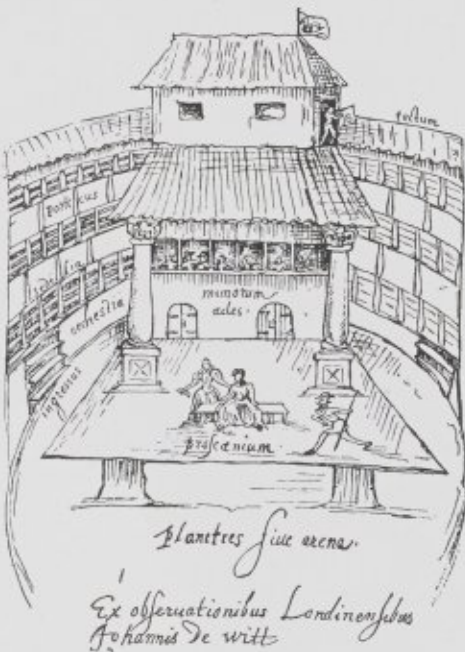 tectum
porticus
sedilia
orchestra
ingressus
mimorum
ædes.
proscænium.
planities sive arena.
Ex observationibus Londinensibus
Johannis De witt